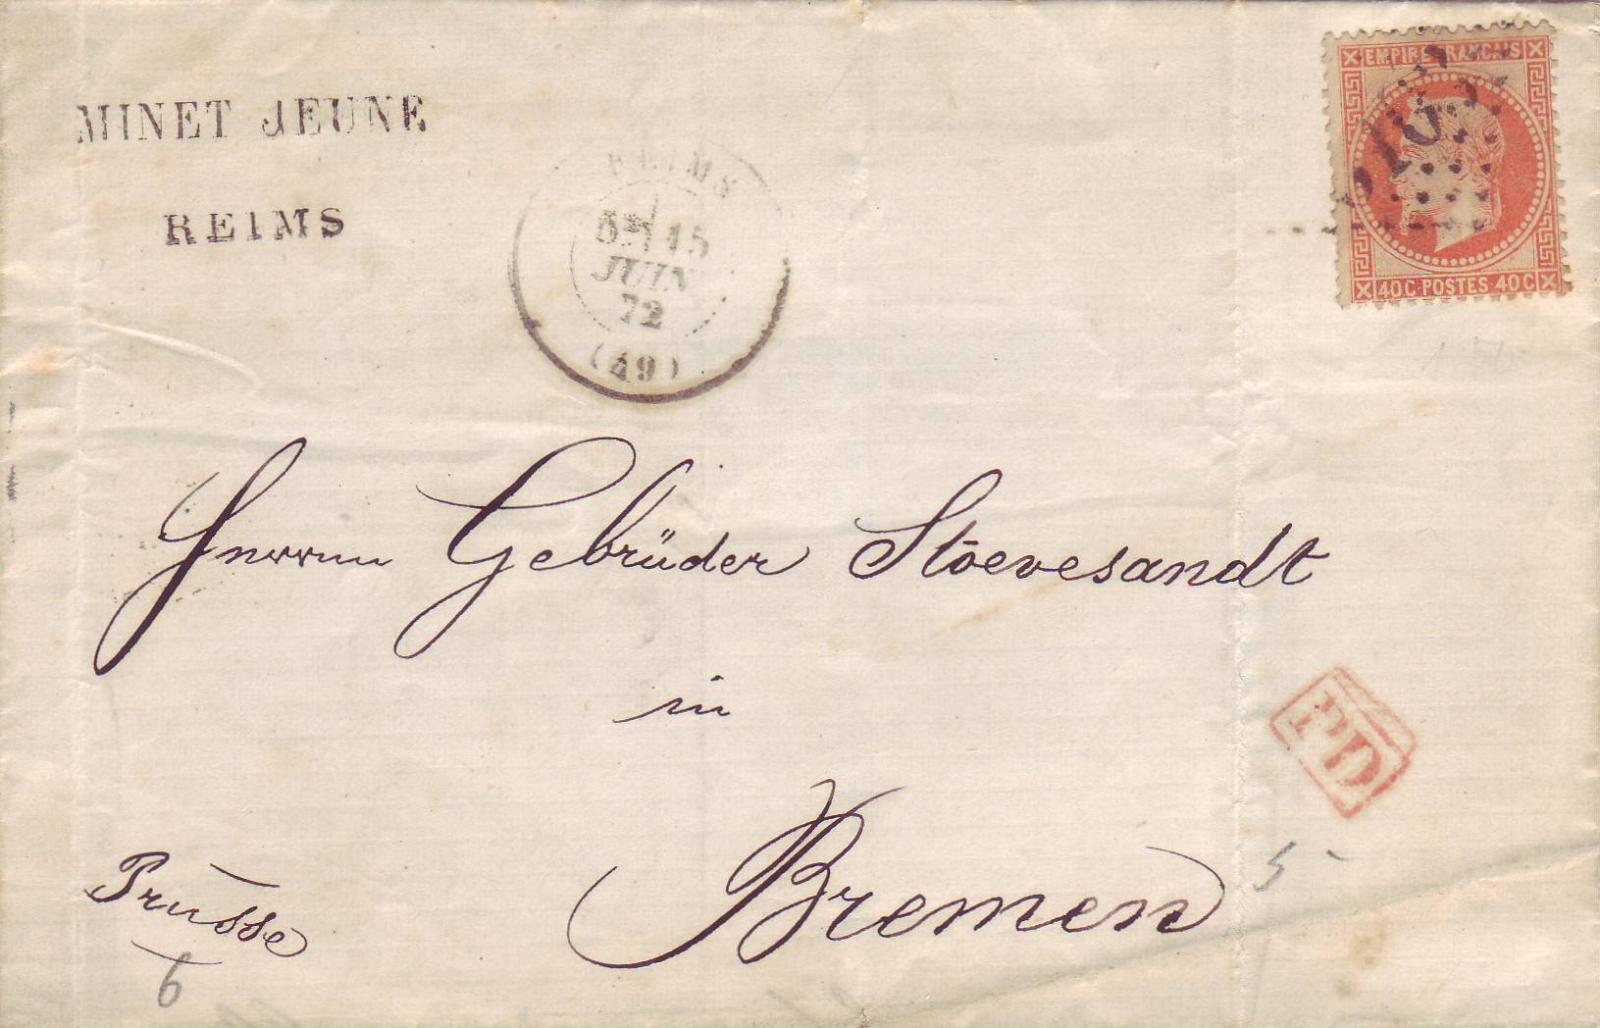 MINET JEUNE
REIMS
REIMS
5E 15
JUIN
72
(49)
EMPIRE FRANÇAIS
40C POSTES 40C
Herren Gebrüder Stoevesandt
in
Bremen
PD
Prusse
6